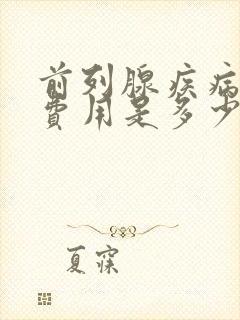 前列腺疾病
费用是多少
夏寐